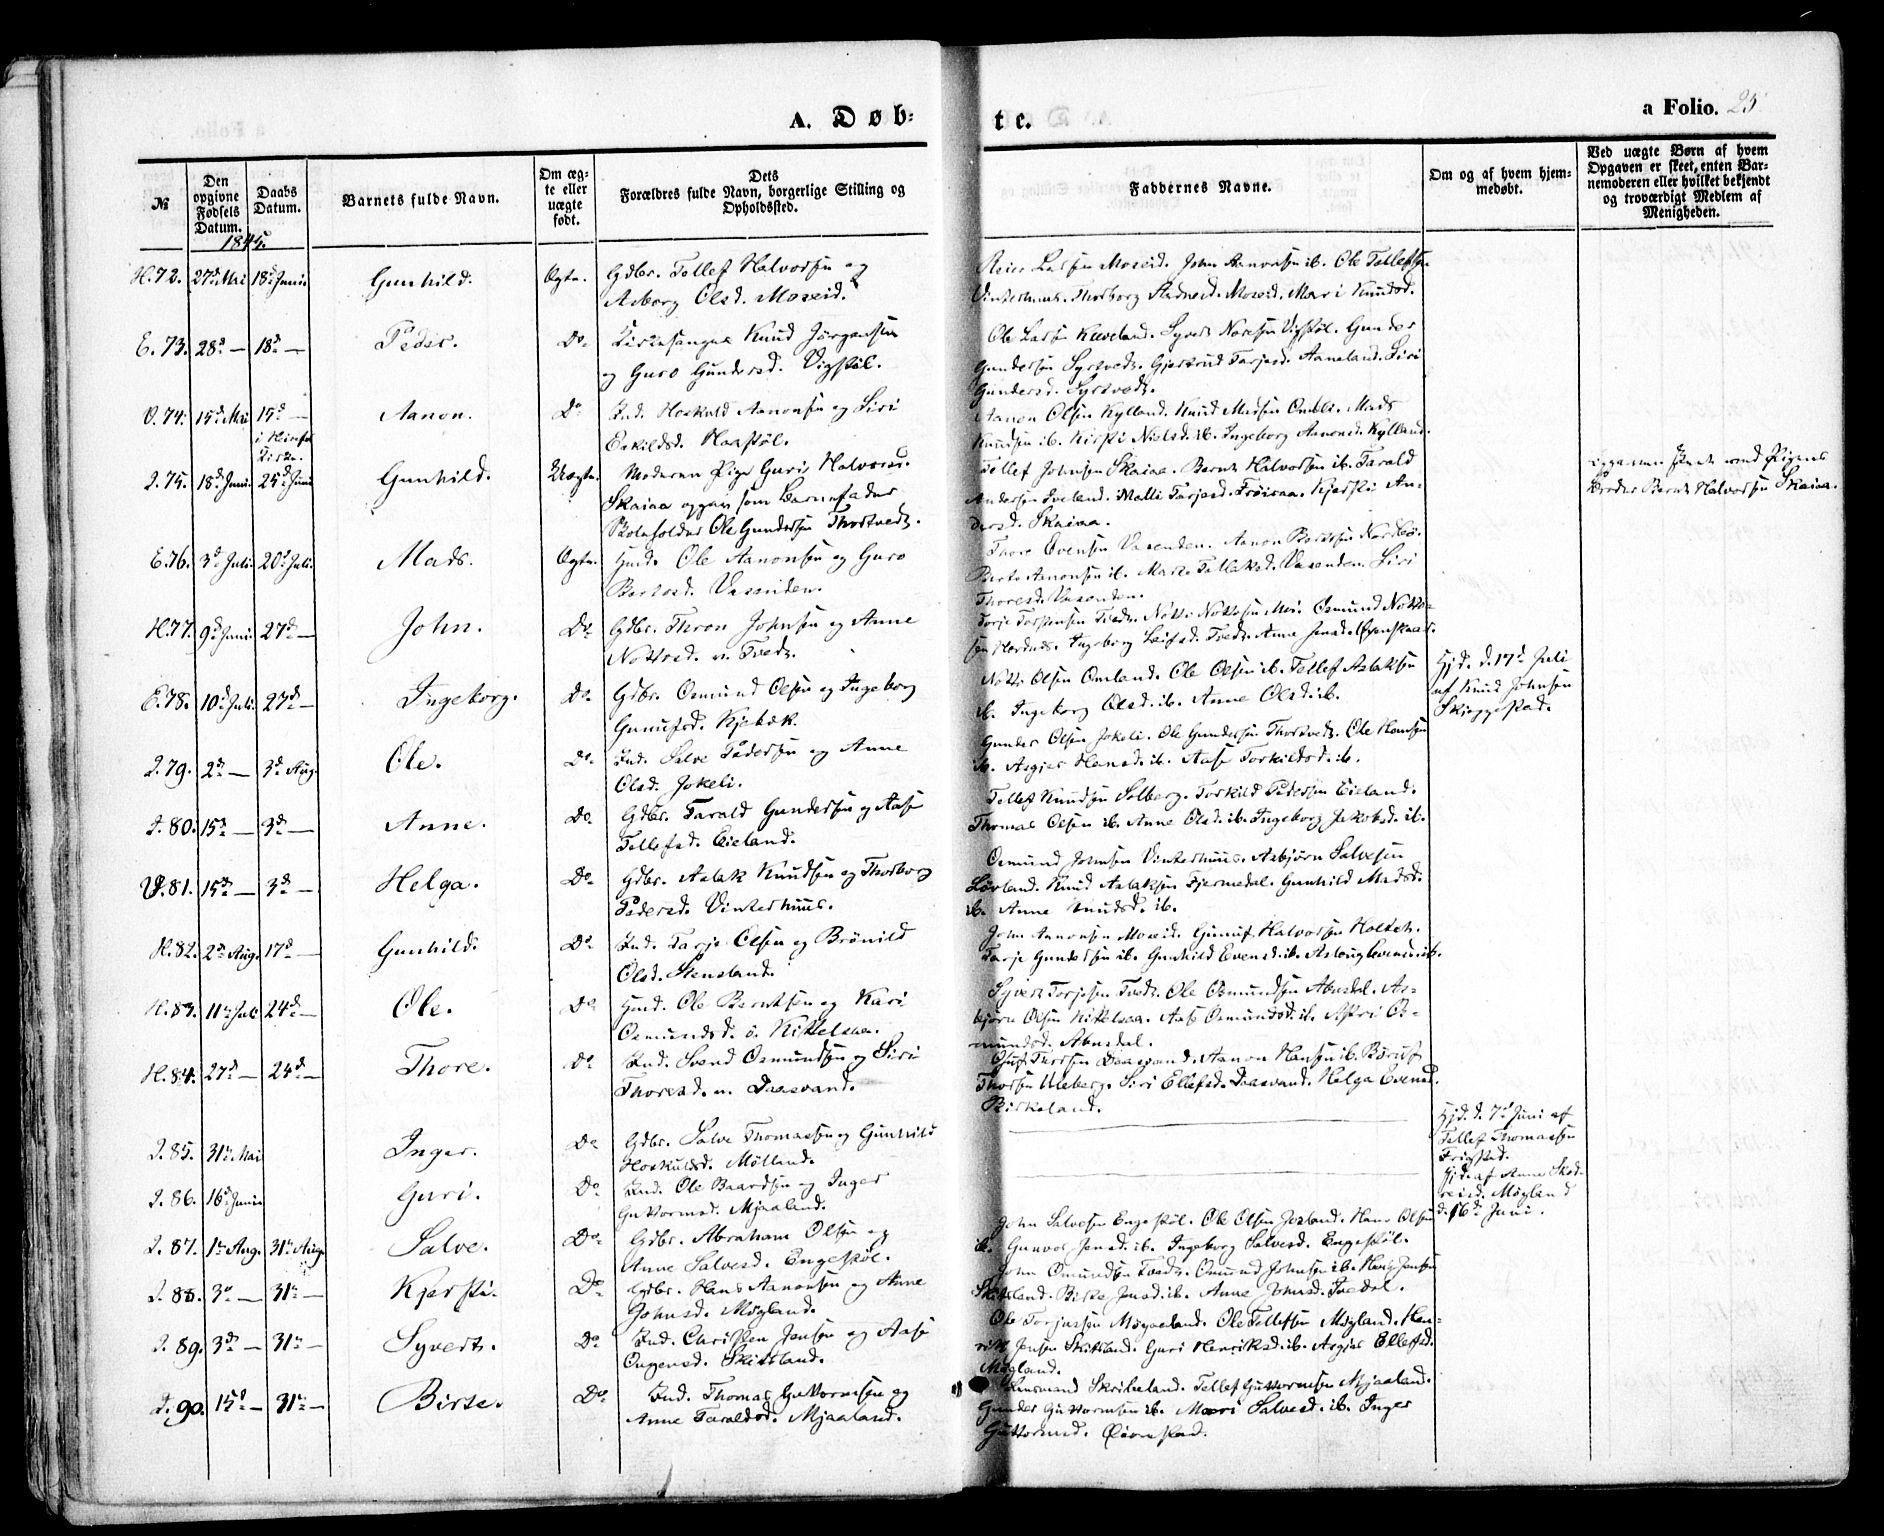 A. Døb-
te.
a Folio. 25
№
Den opgivne Fødsels Datum.
Daabs Datum.
Barnets fulde Navn.
Om ægte eller uægte født.
Dets
Forældres fulde Navn, borgerlige Stilling og
Opholdssted.
Faddernes Navne.
Om og af hvem hjem-
medøbt.
Ved uægte Børn af hvem
Opgaven er skeet, enten Bar-
nemoderen eller hvilket bekjendt
og troværdigt Medlem af
Menigheden.
1845.
H.72. 27d Mai 18d Juni Gunhild. Ægte. Gdbr. Tellef Halvorsen og
Asborg Olsd. Moseid.
Reier Larsen Moseid. John Aanonsen ib. Ole Tellefsen
Vinterhuus. Thorborg Moseid. Mari Knudsd.
E.73. 28d — 18d — Peder. Do. Kirkesanger Knud Jørgensen
og Guro Gundersd. Vigstøl.
Ole Larsen Kleveland. Syvert Vigstøl. Gunder
Gundersen Syrtvedt. Gjertrud Tarjesd. Aaneland. Siri
Gundersd. Syrtvedt.
O.74. 15d Mai 15d — Aanon. Do Ind. Hoskuld Aanonsen og Siri
Eskildsd. Haastøl.
Aanon Olsen Kylland. Knud Madsen Mads
Knudsen ib. Kirsti Nielsd. ib. Ingeborg Aanonsd. Kylland.
I.75. 18d Juni. 25d Juni Gunhild. Uægte. Moderen Pige Guri Halvorsd.
Skaiaa opgav som Barnefader
Ole Gundersen Thortvedt.
Tellef Johnsen Skaiaa. Bernt Halvorsen ib. Tarald
Andersen Iveland. Malli Tarjesd. Frøisaa. Kjersti An-
dersd. Skaiaa.
Opgaven skeet med Pigens
Broder Bernt Halvorsen Skaiaa.
E.76. 3d Juli. 20d Juli. Mads. Ægte. Huusmd. Ole Aanonsen og Guro
Bertesd. Vasenden.
Thore Evensen Vasenden. Aanon Nordbø.
Berte Aanonsen ib. Vasenden. Siri
Thoresd. Vasenden.
H.77. 9d Juni 27d — John. Do. Gdbr. Thron Johnsen og Anne
Nottosd. n. Tvedt.
Torje Torjussen Tvedt. Notto Nottosen Moi. Osmund Notto-
sen Ingeborg Leifsd. Tvedt. Anne Jensd.
E.78. 10d Juli. 27d — Ingeborg. Do. Gdbr. Osmund Olsen og Ingeborg
Gunufsd. Kjebæk.
Notto Olsen Omland. Ole Olsen ib. Tellef Aslaksen
ib. Ingeborg Olsd. ib. Anne Olsd. ib.
Hjd. d. 17d Juli
af Knud Johnsen
Skjeggestad.
I.79. 2d — 3d Aug. Ole. Do. Ind. Salve Pedersen og Anne
Olsd. Jokeli.
Gunder Olsen Jokeli. Ole Gundersen Thortvedt. Ole Hansen
ib. Asgjer Hansd. ib. Aase Torkildsd. ib.
I.80. 15d — 3d — Anne. Do. Gdbr. Tarald Gundersen og Aase
Tellefsd. Eieland.
Tellef Knudsen Solberg. Torkild Pedersen Eieland.
Thomas Olsen ib. Anne Olsd. ib. Ingeborg Jakobsd. ib.
V.81. 15d — 3d — Helga. Do. Gdbr. Aslak Knudsen og Thorborg
Pedersd. Vinterhuus.
Osmund Johnsen Vinterhuus. Asbjørn Salvesen
Løvland. Knud Aslaksen Fjermedal. Gunhild Madsd.
ib. Anne Knudsd. ib.
H.82. 2d Aug. 17d — Gunhild. Do. Ind. Tarje Olsen og Brønild
Olsd. Stensland.
John Aanonsen Moseid. Gunuf Halvorsen Holtet.
Tarje Gundersen ib. Gunhild Evensd. ib. Aslaug Evensd. ib.
H.83. 11te Juli 24d — Ole. Do Huusmd. Ole Berntsen og Kari
Osmundsd. ø. Kittelsaa.
Syvert Torjesen Tvedt. Ole Osmundsen Abusdal. As-
bjørn Olsen Kittelsaa. Aase Osmundsd. ib. Astri Os-
mundsd. Abusdal.
H.84. 27d — 24d — Thore. Do Ind. Svend Osmundsen og Siri
Thoresd. n. Daasvand.
Daasvand. Aanon Hansen ib. Børuf
Thorsen Uleberg. Siri Ellefsd. Daasvand. Helga Evensd.
Birkeland.
I.85. 31te Mai Inger. Do Gdbr. Salve Thomassen og Gunhild
Hoskuldsd. Mølland.
Hjd. d. 7d Juni af
Tellef Thomassen
Frigstad.
I.86. 16d Juni Guri. Do. Ind. Ole Baardsen og Inger
Guttormsd. Mjaaland.
Hjd. af Anne
Møgland
d. 16d Juni.
I.87. 1te Aug. 31te Aug. Salve. Do. Gdbr. Abraham Olsen og
Anne Salvesd. Engestøl.
John Salvesen Engestøl. Ole Olsen Hans Olsen
ib. Gunvor Jensd. ib. Ingeborg Salvesd. Engestøl.
I.88. 3d — 31te — Kjersti. Do Gdbr. Hans Aanonsen og Anne
Johnsd. Møgland.
John Omundsen Tvedt. Omund Johnsen ib. Hans Jensen
Skitsland. Birte Jensd. ib. Anne Johnsd.
I.89. 3d — 31te — Syvert. Do Ind. Christen Jensen og Aase
Omgensd. Skitsland.
Ole Torjussen Møgland. Ole Tellefsen Møgland. Hen-
rik Jensen Skitsland. Guri Henriksd. ib. Asgjer Ellefsd.
Møgland.
I.90. 15d — 31te — Birte. Do Ind. Thomas Guttormsen og
Anne Taraldsd. Mjaaland.
Lensmand Skribeland. Tellef Guttormsen Mjaaland.
Gunder Guttormsen ib. Mari Salvesd. ib. Inger
Guttormsd.